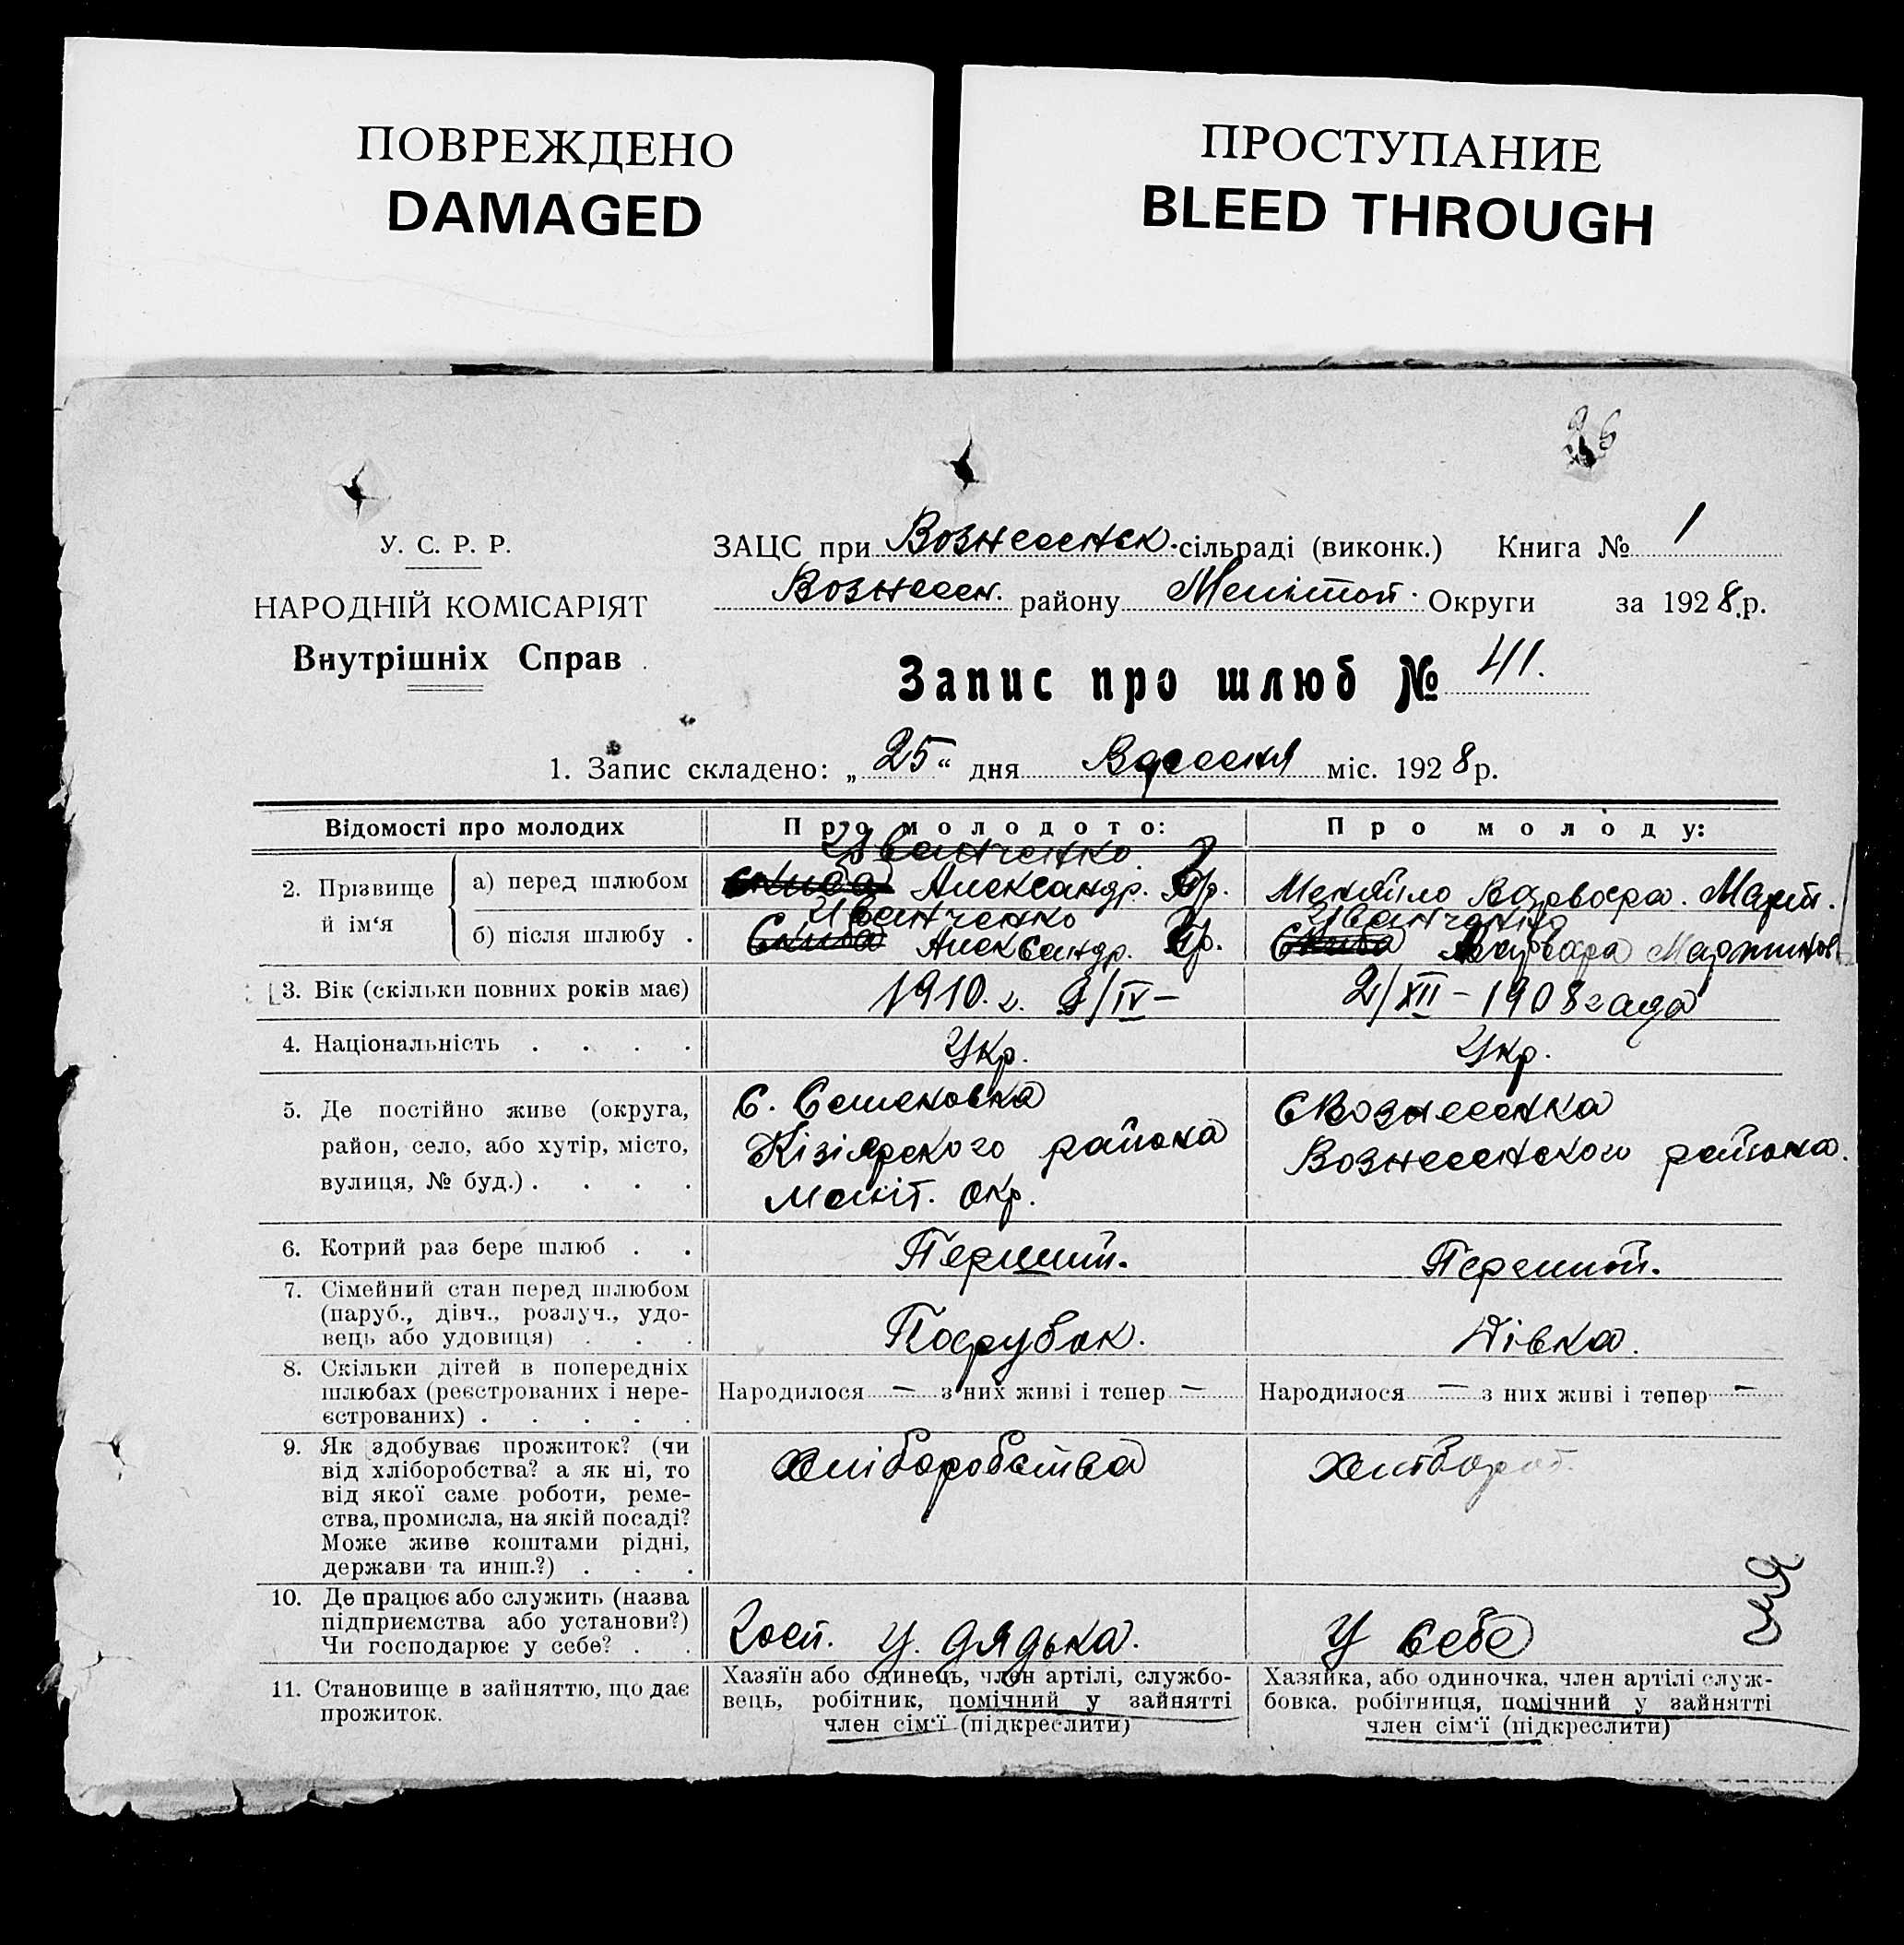 ПОВРЕЖДЕНО
DAMAGED
ПРОСТУПАНИЕ
BLEED THROUGH
26
У. С. Р. Р.
НАРОДНІЙ КОМІСАРІЯТ
Внутрішніх Справ
ЗАЦС при Вознесенск. сільраді (виконк.) Книга № 1
Вознесен. району Меліtоп. Округи за 1928 р.
Запис про шлюб № 41.
1. Запис складено: „25“ дня Вересня міс. 1928 р.
Відомості про молодих
Про молодого:
Про молоду:
2. Прізвище й ім‘я
а) перед шлюбом
Иванченко
Скиба Александр. Гр.
Варвара. Март.
б) після шлюбу .
Иванченко
Скиба Александр. Гр.
Иванченко
Скиба Варвара Мартинов
3. Вік (скільки повних років має)
1910. г. /IV –
2/XII – 1908 года
4. Національність . . . .
Укр.
Укр.
5. Де постійно живе (округа,
район, село, або хутір, місто,
вулиця, № буд.) . . . .
С. Семеновка
Кізіярского района
Меліт. Окр.
С Вознесенка
Вознесенского района.
6. Котрий раз бере шлюб . .
Перший.
Перший.
7. Сімейний стан перед шлюбом
(паруб., дівч., розлуч., удо-
вець або удовиця) . . .
Парубок.
Дівка.
8. Скільки дітей в попередніх
шлюбах (реєстрованих і нере-
єстрованих) . . . . .
Народилося – з них живі і тепер –
Народилося – з них живі і тепер –
9. Як здобуває прожиток? (чи
від хліборобства? а як ні, то
від якої саме роботи, реме-
ства, промисла, на якій посаді?
Може живе коштами рідні,
держави та инш.?) . . .
Хліборобства
Хлібороб.
10. Де працює або служить (назва
підприємства або установи?)
Чи господарює у себе? . .
Госп. у дядька.
У себе
11. Становище в зайняттю, що дає
прожиток.
Хазяїн або одинець, член артілі, службо-
вець, робітник, помічний у зайнятті
член сім‘ї (підкреслити)
Хазяйка, або одиночка, член артілі служ-
бовка, робітниця, помічний у зайнятті
член сім‘ї (підкреслити)